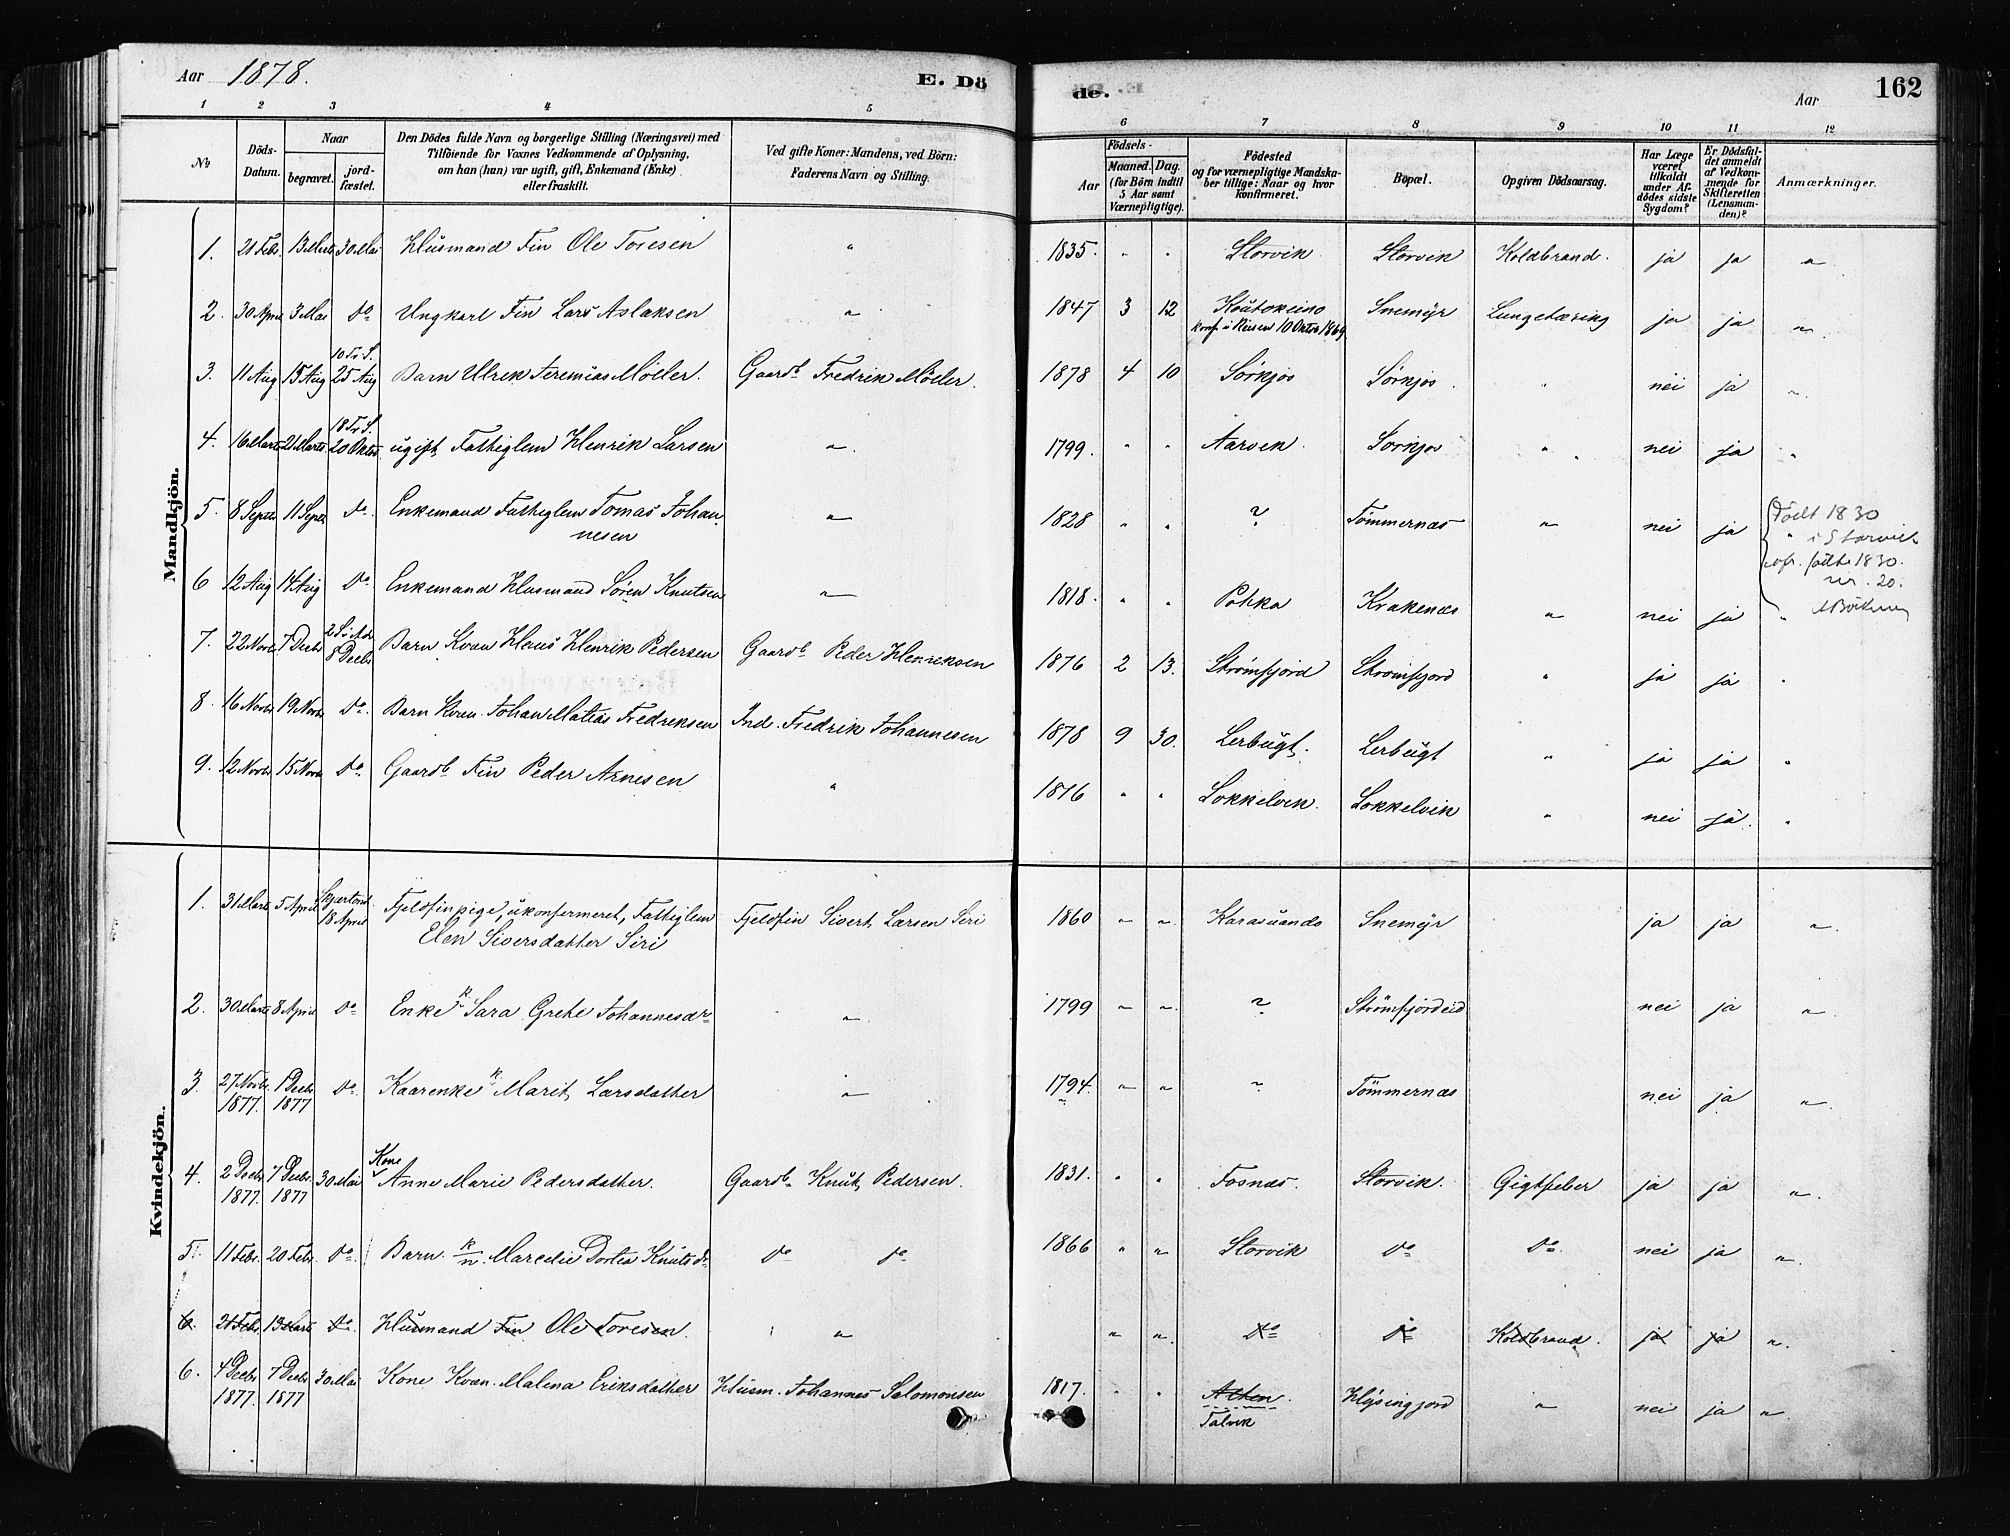 Aar 1878. E. Dö de. Aar 162
1 2 3 4 5 6 7 8 9 10 11 12
№ Döds-Datum. Naar begravet. jord-fæstet. Den Dödes fulde Navn og borgerlige Stilling (Næringsvei) med Tilföiende for Voxnes Vedkommende af Oplysning, om han (hun) var ugift, gift, Enkemand (Enke) eller fraskilt. Ved gifte Koner: Mandens, ved Börn: Faderens Navn og Stilling. Födsels- Aar Maaned. Dag. (for Börn indtil 5 Aar samt Værnepligtige). Födested og for værnepligtige Mandska-ber tillige: Naar og hvor konfirmeret. Bopæl. Opgiven Dödsaarsag. Har Læge været tilkaldt under Af-dödes sidste Sygdom? Er Dödsfal-det anmeldt af Vedkom-mende for Skifteretten (Lensman-den)? Anmærkninger.
Mandkjön.
1. 21 Febr. 13 Marts 30 Mai Husmand Fin Ole Toresen " 1835. " " Storvik Storvik Koldbrand. ja ja "
2. 30 April 3 Mai do Ungkarl Fin Lars Aslaksen " 1847 3 12 Koutokeino Snemyr Lungetæring ja ja "
konf. i Reisen 10 Oktbr 1869
10 Tr. S.
3. 11 Aug 15 Aug 25 Aug Barn Ulrik Jeremias Möller. Gaardb. Fredrik Möller. 1878 4 10 Sörkjos Sörkjos. " nei ja "
18 Tr. S.
4. 16 Marts 21 Marts 20 Oktbr ugift Fattiglem Henrik Larsen " 1799. " " Aarvik. Sörkjos " nei ja "
5. 8 Septr 11 Septr do. Enkemand Fattiglem Tomas Johan- " 1828 " " ? Tömmernæs " nei ja Födt 1830
nesen
" i Storvik
cfr. födte 1830.
nr. 20.
6 12 Aug 14 Aug do Enkemand Husmand Sören Knutsen " 1818. " " Pahka Krakenæs " nei ja "
7. 22 Novbr 7 Decbr 8 Decbr Barn Kvæn Hans Henrik Pedersen Gaardb. Peder Henriksen 1876 2 13. Strömfjord Strömfjord " ja ja "
8. 16 Novbr 19 Novbr do. Barn Kvæn Johan Matias Fredriksen Ind. Fredrik Johannesen 1878 9 30. Lerbugt. Lerbugt " ja ja "
9. 12 Novbr 15 Novbr do. Gaardb. Fin Peder Arnesen " 1816 " " Lokkelvik. Lokkelvik " nei ja. "
Kvindekjön.
1. 31 Marts 5 April Skjærtorsd. 18 April Fjeldfinpige, ukonfermeret, Fattiglem Fjeldfin Sivert Larsen Siri 1860 " " Karasuando Snemyr ja ja "
Elen Siversdatter Siri
2. 30 Marts 8 April do Enke k Sara Grethe Johannesdr " 1799 " " ? Strömfjordeid nei ja "
3. 27 Novbr. 1877. 1 Decbr. 1877 do. Kaarenke k Marit Larsdatter " 1794. " " ? Tömmernæs nei ja "
4. 2 Decbr. 1877. 7 Decbr. 1877 30 Mai Kone Anne Marie Pedersdatter. Gaardb. Knut Pedersen. 1831. " " Fosnæs. Storvik. Gigtfeber ja ja "
5. 11 Febr. 20 Febr. do. Barn k/n. Marcelie Dortea Knutsdr do do 1866 " " Storvik do do. nei ja "
6. 21 Febr. 13 Marts do. Husmand Fin Ole Toresen. " " " do do Koldbrand. ja ja "
6. 4 Decbr. 1877. 7 Decbr. 1877 30 Mai Kone Kvæn Malena Eriksdatter Husm. Johannes Salomonsen 1817. " " Alten. Talvik Höisingjord " nei ja "